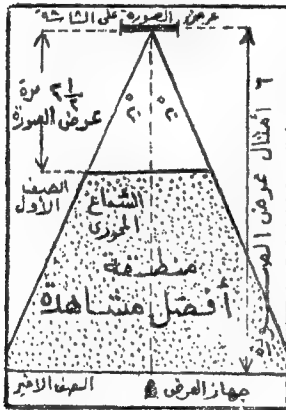 عرض الصورة على الشاشة
٢ ١/٢ مرة
عرض الصورة
٢٠° ٢٠°
٦ أمثال عرض الصورة
الصف
الأول
الشعاع
المحورى
منطقة
أفضل مشاهدة
الصف الأخير
جهاز العرض